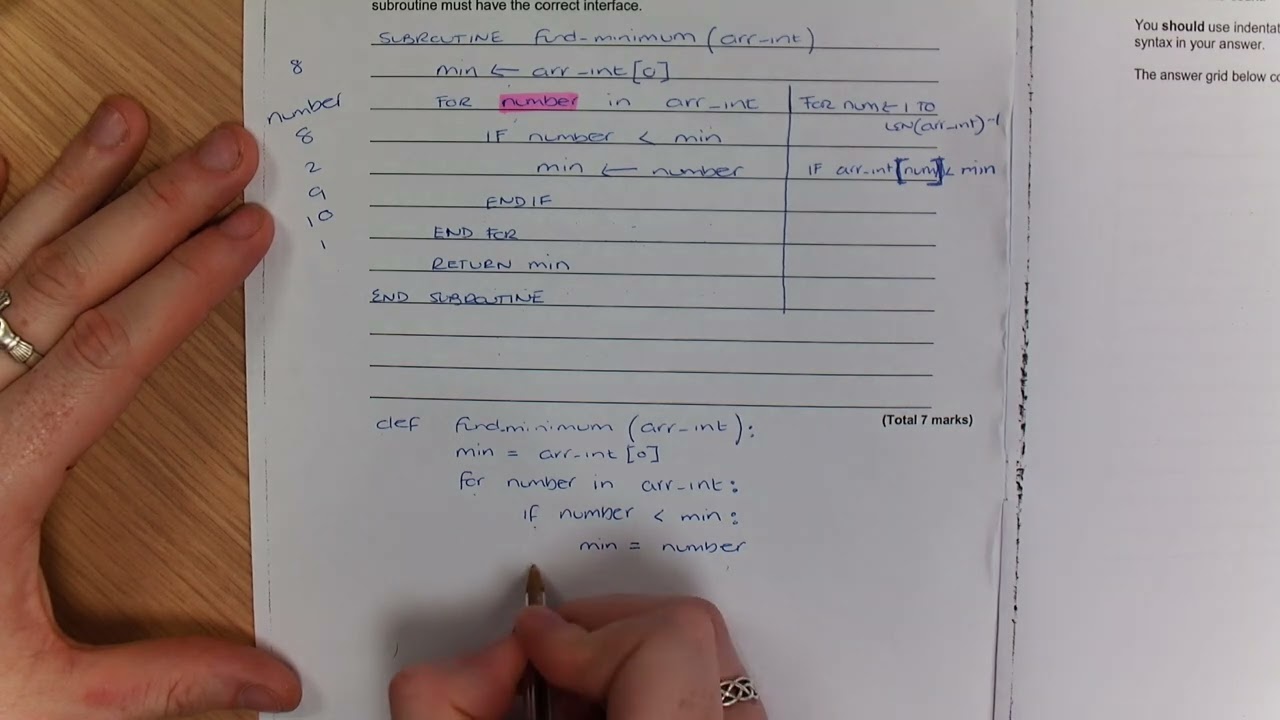 subroutine must have the correct interface.
SUBROUTINE find-minimum (arr-int)
min ← arr-int[0]
FOR number in arr-int
IF number < min
min ← number
ENDIF
END FOR
RETURN min
END SUBROUTINE
FOR num ← 1 TO
LEN(arr-int)-1
IF arr-int[num] < min
8
number
8
2
9
10
1
(Total 7 marks)
def find-minimum (arr-int):
min = arr-int [0]
for number in arr-int:
if number < min:
min = number
You should use indentat
syntax in your answer.
The answer grid below co